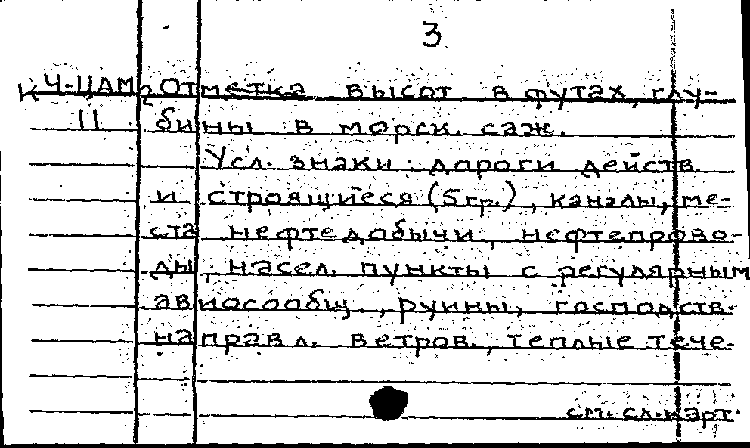 3
К Ч-ЦАМ Отметка высот в футах, глу-
11 бины в морск. саж.
Усл. знаки: дороги действ.
и строящиеся (5 гр.), каналы, ме-
ста нефтедобычи, нефтепрово-
ды, насел. пункты с регулярным
авиасообщ., руины, господств.
направл. ветров, теплые тече-
см. сл. карт.